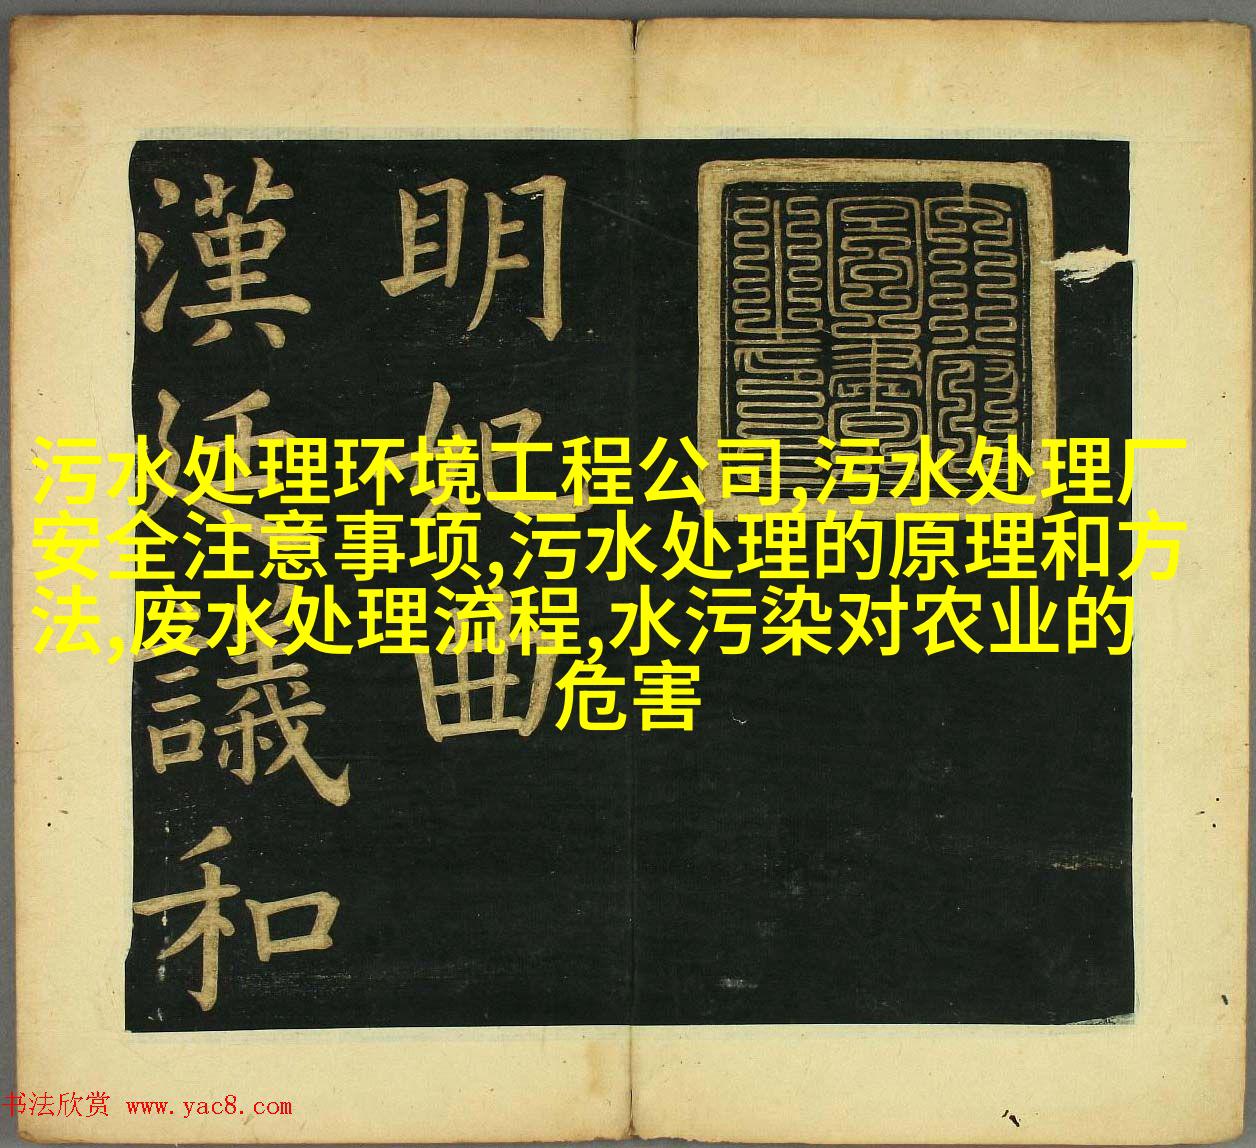 污水处理环境工程公司,污水处理厂
安全注意事项,污水处理的原理和方
法,废水处理流程,水污染对农业的
危害
明妃曲
漢 議和
书法欣赏 www.yac8.com